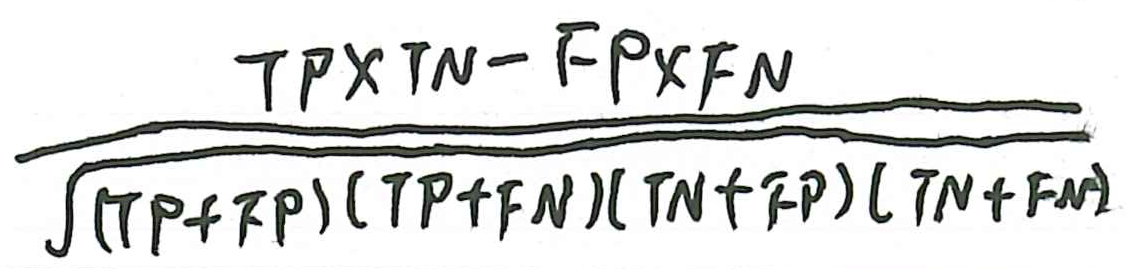 TP×TN-FP×FN
√(TP+FP)(TP+FN)(TN+FP)(TN+FN)